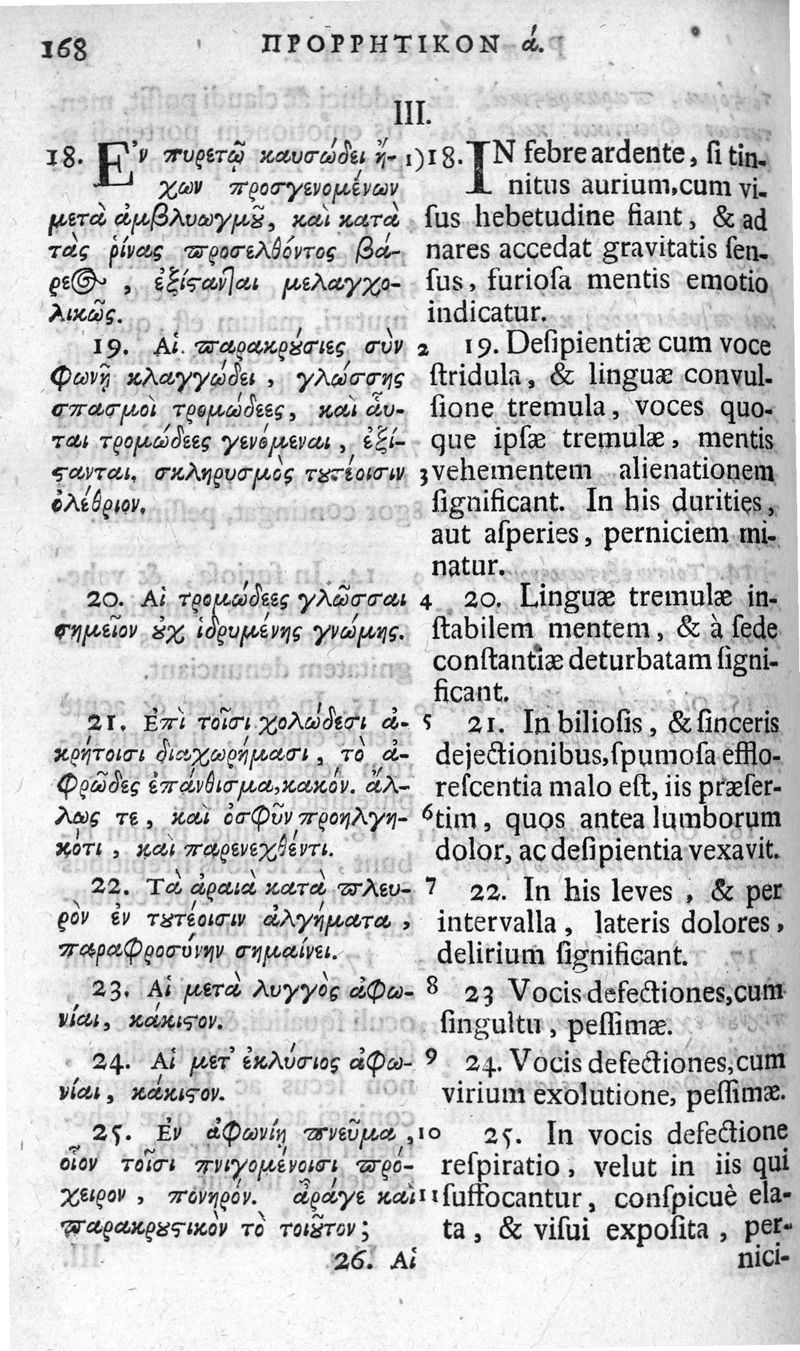 168 ΠΡΟΡΡΗΤΙΚΟΝ ά.
III.
18. Ε᾿ν πυρετῷ καυσώδει ἤ-
χων προσγενομένων
μετὰ ἀμβλυωγμȣ͂, καὶ κατὰ
τὰς ῥίνας προσελθόντος βά-
ρεος, ἐξίϛανται μελαγχο-
λικῶς.
19. Αἱ παρακρȣ́σιες σὺν
φωνῇ κλαγγώδει, γλώσσης
σπασμοὶ τρομώδεες, καὶ αὗ-
ται τρομώδεες γενόμεναι, ἐξί-
ϛανται. σκληρυσμὸς τȣτέοισιν
ὀλέθριον.
20. Αἱ τρομώδεες γλῶσσαι
σημεῖον ȣ̓χ ἱδρυμένης γνώμης.
21. Ἐπὶ τοῖσι χολώδεσι ἀ-
κρήτοισι διαχωρήμασι, τὸ ἀ-
φρῶδες ἐπάνθισμα, κακόν. ἄλ-
λως τε, καὶ ὀσφῦν προηλγη-
κότι, καὶ παρενεχθέντι.
22. Τὰ ἀραιὰ κατὰ πλευ-
ρὸν ἐν τȣτέοισιν ἀλγήματα,
παραφροσύνην σημαίνει.
23. Αἱ μετὰ λυγγὸς ἀφω-
νίαι, κάκιϛον.
24. Αἱ μετ᾿ ἐκλύσιος ἀφω-
νίαι, κάκιϛον.
25. Ἐν ἀφωνίῃ πνεῦμα,
οἷον τοῖσι πνιγομένοισι πρό-
χειρον, πονηρόν. ἀράγε καὶ
παρακρȣϛικὸν τὸ τοιȣ͂τον;
26. Αἱ
1) 18. IN febre ardente, ſi tin-
nitus aurium, cum vi-
ſus hebetudine fiant, & ad
nares accedat gravitatis ſen-
ſus, furioſa mentis emotio
indicatur.
2 19. Deſipientiæ cum voce
ſtridula, & linguæ convul-
ſione tremula, voces quo-
que ipſæ tremulæ, mentis
3 vehementem alienationem
ſignificant. In his durities,
aut aſperies, perniciem mi-
natur.
4 20. Linguæ tremulæ in-
ſtabilem mentem, & à ſede
conſtantiæ deturbatam ſigni-
ficant.
5 21. In bilioſis, & ſinceris
dejectionibus, ſpumoſa efflo-
reſcentia malo eſt, iis præſer-
6 tim, quos antea lumborum
dolor, ac deſipientia vexavit.
7 22. In his leves, & per
intervalla, lateris dolores,
delirium ſignificant.
8 23 Vocis defectiones, cum
ſingultu, peſſimæ.
9 24. Vocis defectiones, cum
virium exolutione, peſſimæ.
10 25. In vocis defectione
reſpiratio, velut in iis qui
11 ſuffocantur, conſpicuè ela-
ta, & viſui expoſita, per-
nici-